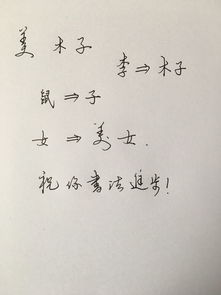 美 木子
李⇒木子
鼠⇒子
女⇒美女.
祝你书法进步!